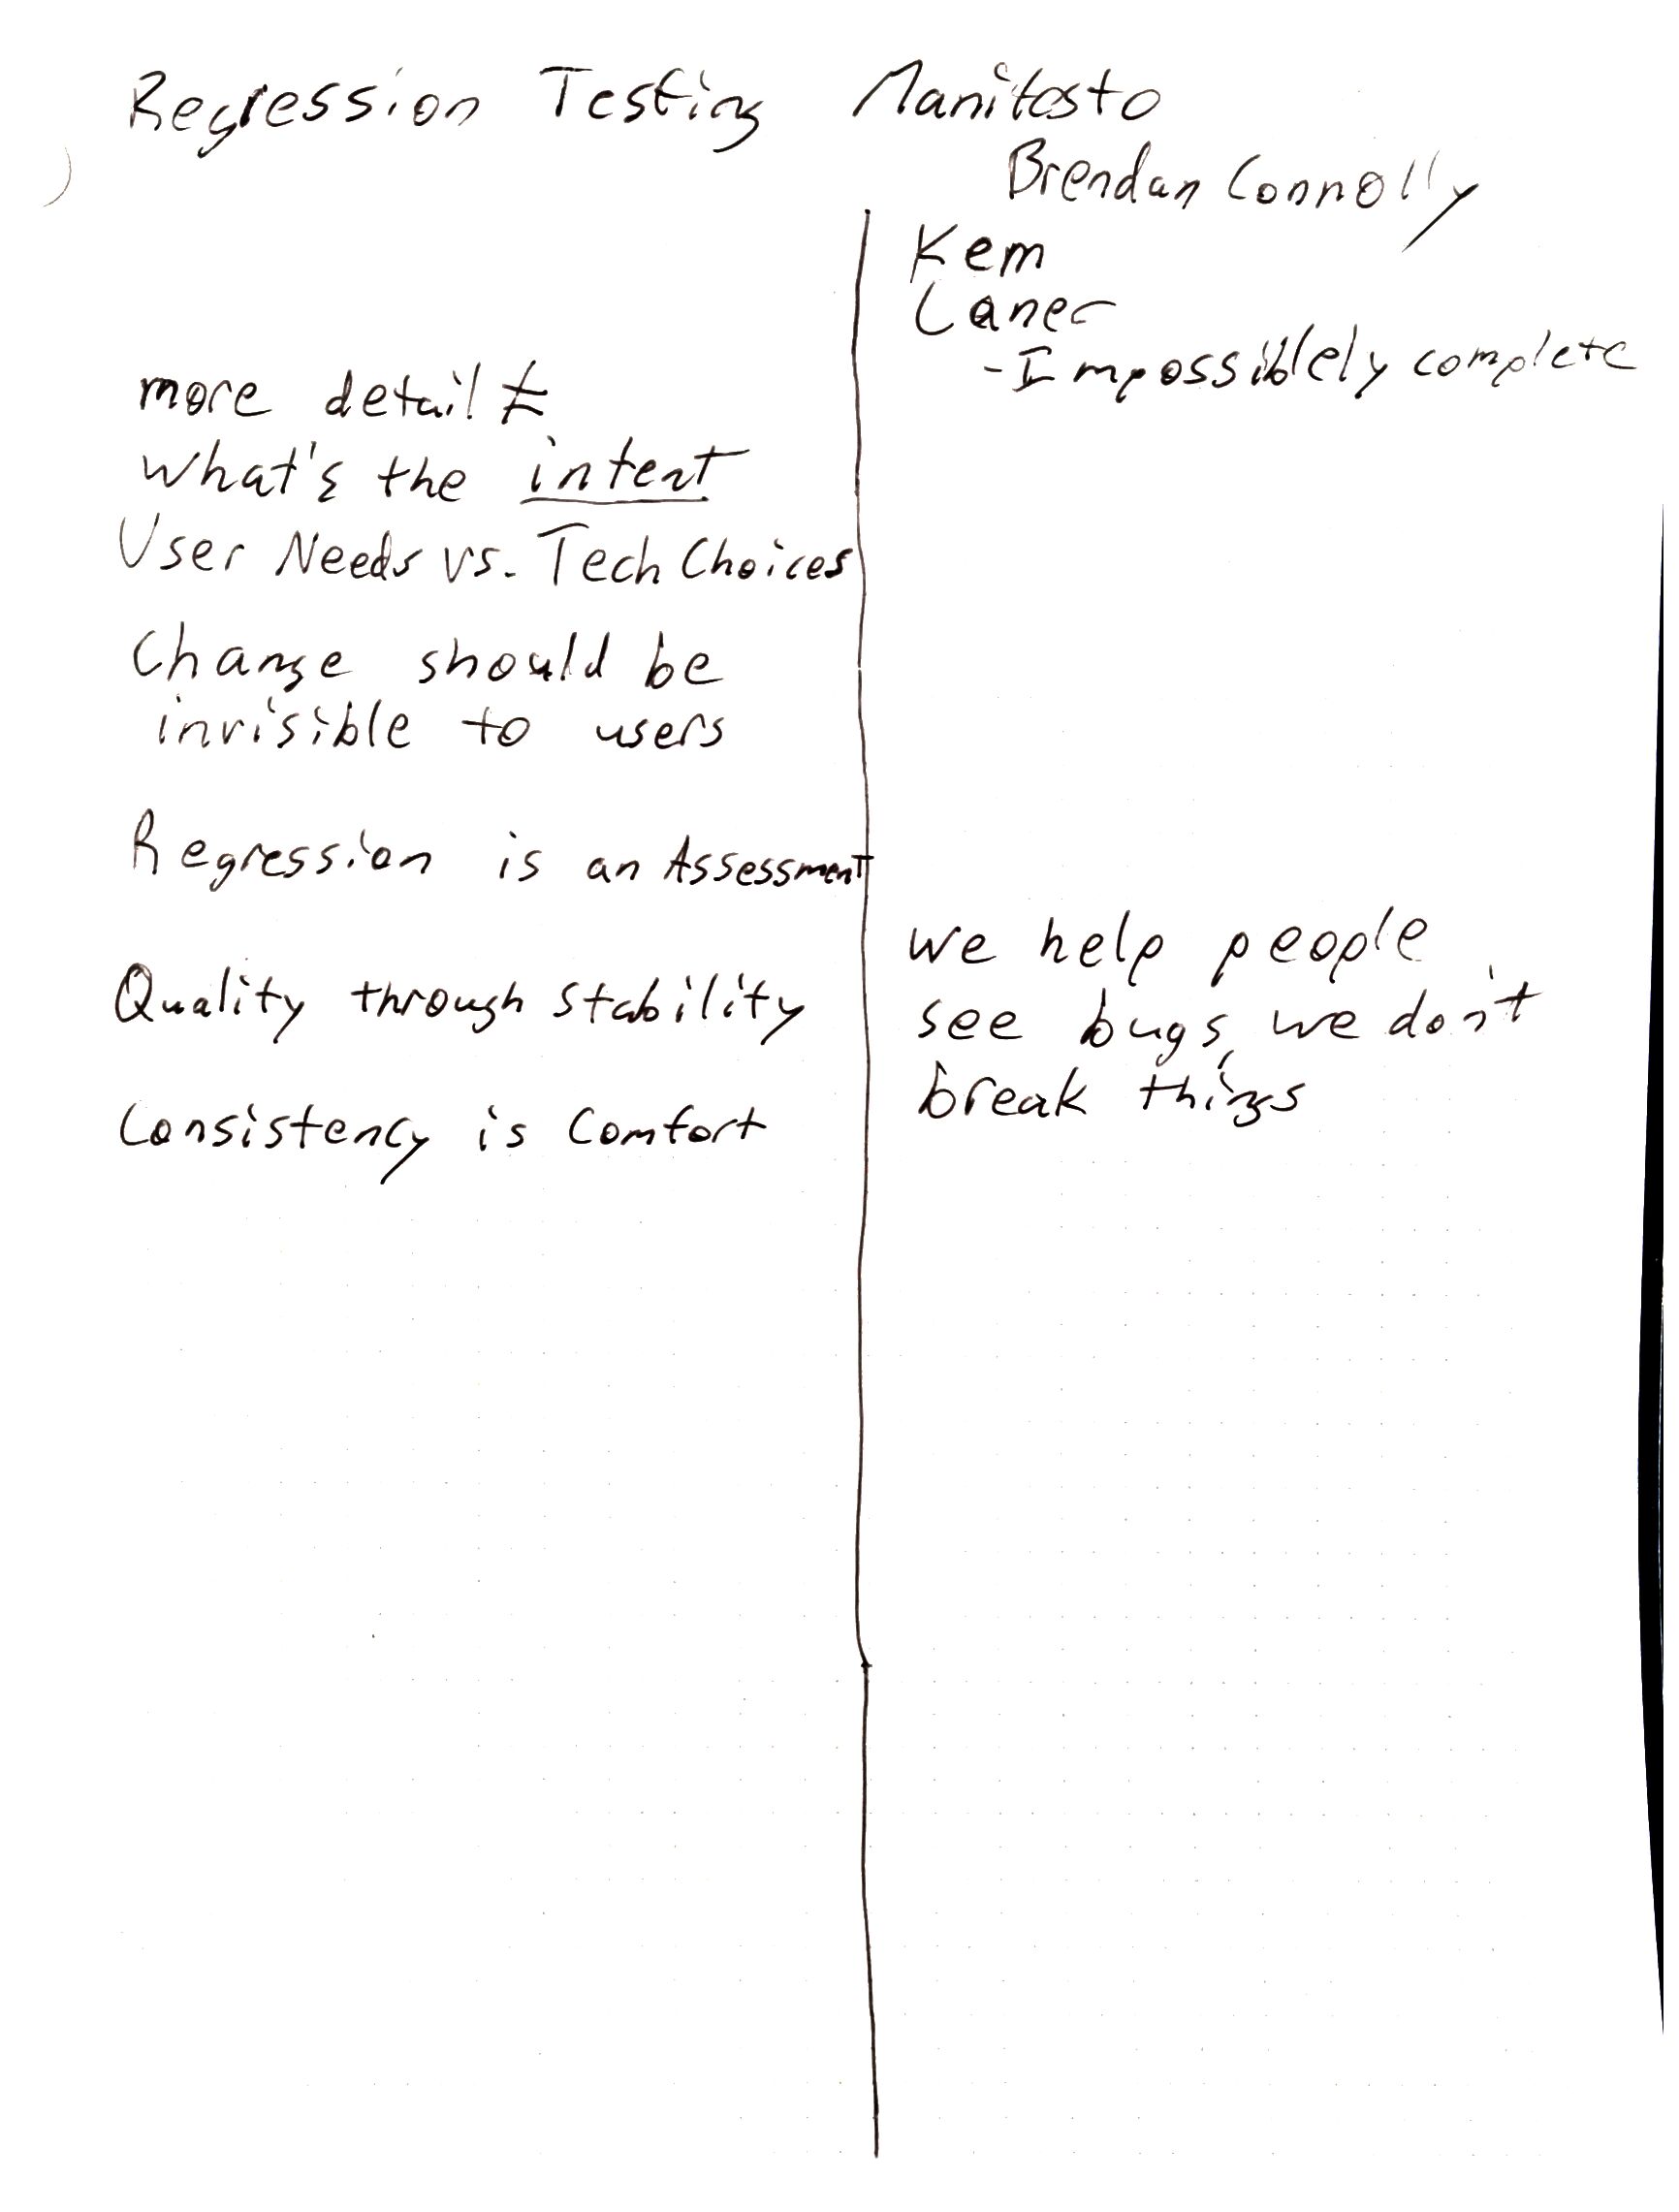 Regression Testing Manifesto
Brendan Connolly
more detail ≠
what's the intent
User Needs vs. Tech Choices
Change should be
invisible to users
Regression is an Assessment
Quality through Stability
Consistency is Comfort
Kem
Caner
-Impossiblely complete
we help people
see bugs, we don't
break things